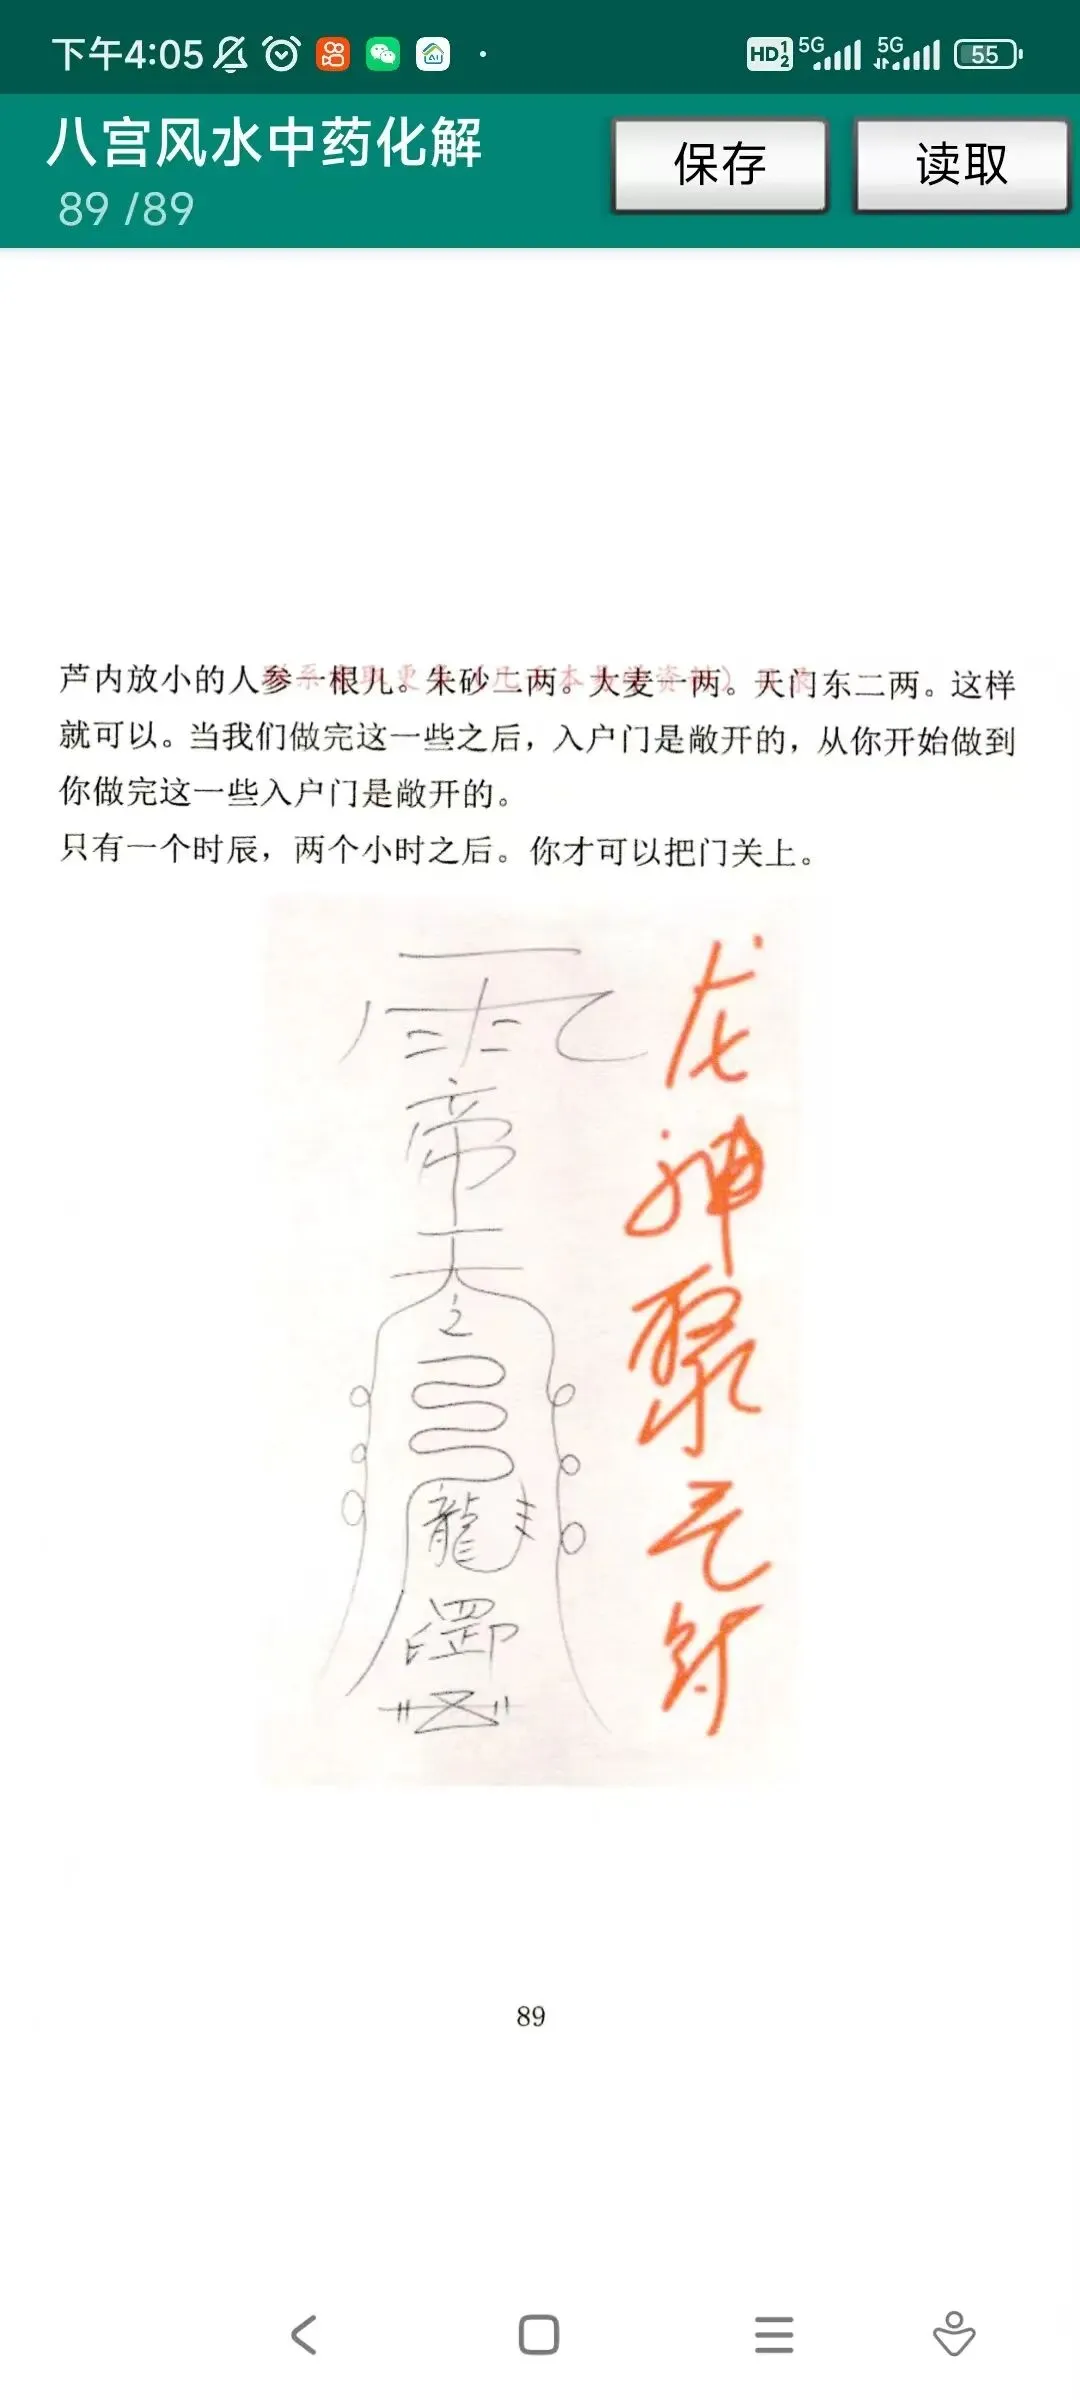 下午4:05 HD 1 2 5G 5G 55
八宫风水中药化解
89 /89
保存 读取
芦内放小的人参一根儿。朱砂二两。大麦一两。天门东二两。这样
就可以。当我们做完这一些之后，入户门是敞开的，从你开始做到
你做完这一些入户门是敞开的。
只有一个时辰，两个小时之后。你才可以把门关上。
雨
帝
天
龍
罡
龙
神
聚
气
符
89